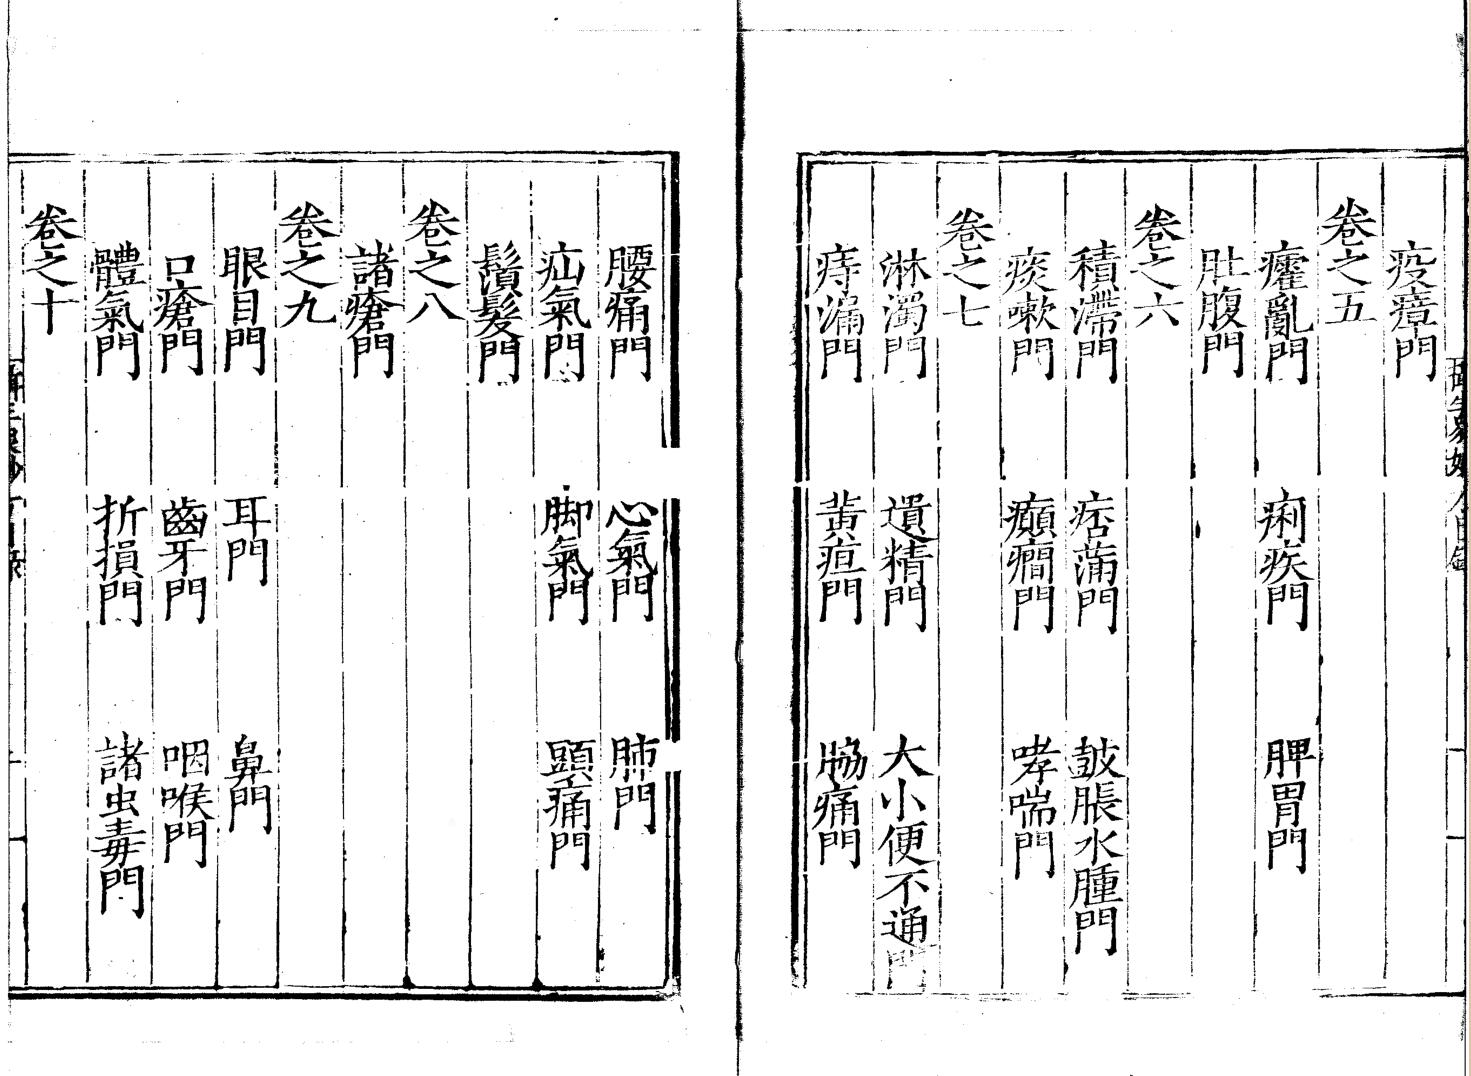 疫瘴門
卷之五
癨亂門 痢疾門 脾胃門
肚腹門
卷之六
積滯門 痞滿門 鼓脹水腫門
痰嗽門 癲癇門 哮喘門
卷之七
淋濁門 遺精門 大小便不通門
痔漏門 黃疸門 脇痛門
腰痛門 心氣門 肺門
疝氣門 脚氣門 頭痛門
鬚髮門
卷之八
諸瘡門
卷之九
眼目門 耳門 鼻門
口瘡門 齒牙門 咽喉門
體氣門 折損門 諸虫毒門
卷之十